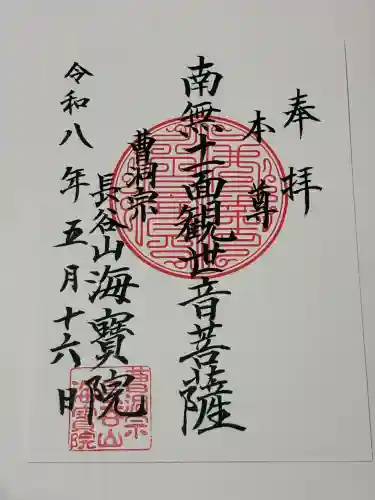 奉拝
本尊
南無十一面観世音菩薩
曹洞宗
長谷山海寳院
令和八年五月十六日
曹洞宗
長谷山
海寳院